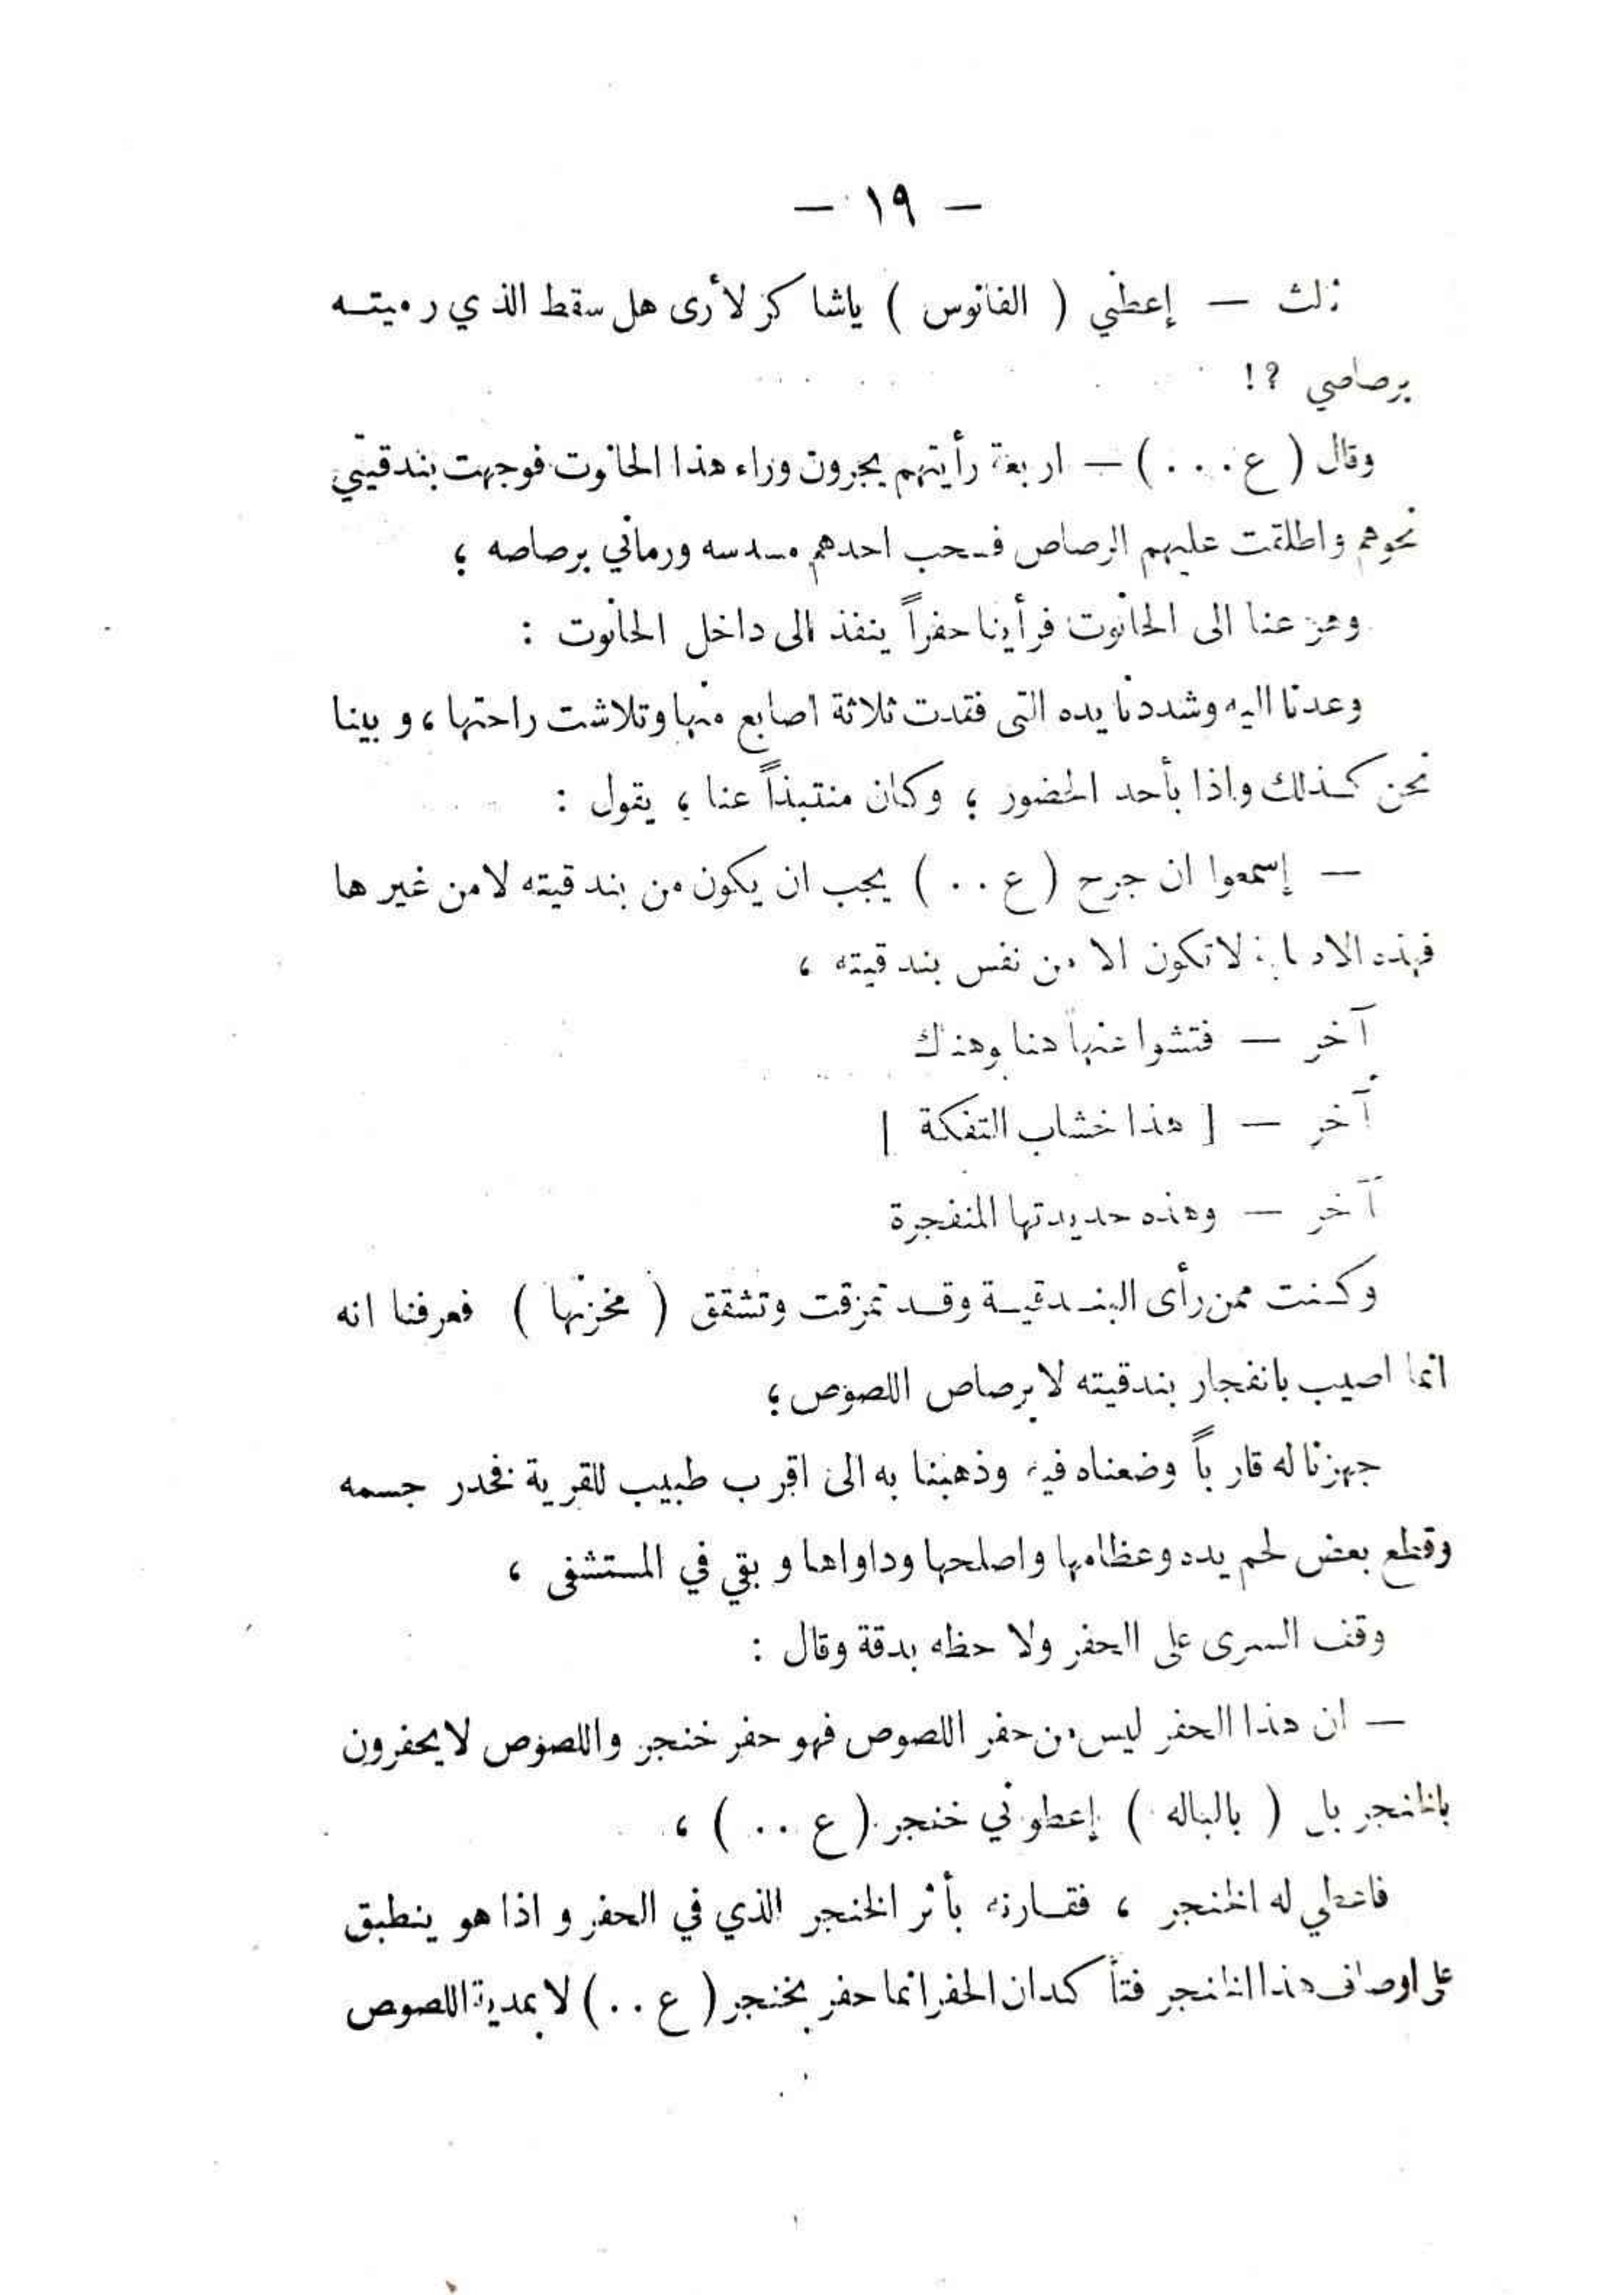 — ١٩ —
ثالث — إعطني ( الفانوس ) ياشاكر لأرى هل سقط الذي رميته
برصاصي ?!
وقال ( ع . . . ) — اربعة رأيتهم يجرون وراء هذا الحانوت فوجهت بندقيتي
نحوهم واطلقت عليهم الرصاص فسحب احدهم مسدسه ورماني برصاصه ؛
وهرعنا الى الحانوت فرأينا حفراً ينفذ الى داخل الحانوت :
وعدنا اليه وشددنا يده التى فقدت ثلاثة اصابع منها وتلاشت راحتها ، وبينا
نحن كذلك واذا بأحد الحضور ؛ وكان منتبذاً عنا ؛ يقول :
— إسمعوا ان جرح ( ع . . ) يجب ان يكون من بندقيته لا من غيرها
فهذه الاصابة لا تكون الا من نفس بندقيته ،
آخر — فتشوا عنها هنا وهناك
آخر — [ هذا خشاب التفكة ]
آخر — وهذه حديدتها المنفجرة
وكنت ممن رأى البندقية وقد تمزقت وتشقق ( مخزنها ) فعرفنا انه
انما اصيب بانفجار بندقيته لا برصاص اللصوص ؛
جهزنا له قارباً وضعناه فيه وذهبنا به الى اقرب طبيب للقرية فخدر جسمه
وقطع بعض لحم يده وعظامها واصلحها وداواها وبقي في المستشفى ،
وقف السرى على الحفر ولاحظه بدقة وقال :
— ان هذا الحفر ليس من حفر اللصوص فهو حفر خنجر واللصوص لا يحفرون
بالخنجر بل ( بالباله ) إعطوني خنجر ( ع . . ) ،
فاعطي له الخنجر ، فقارنه بأثر الخنجر الذي في الحفر واذا هو ينطبق
على اوصاف هذا الخنجر فتأكد ان الحفر انما حفر بخنجر ( ع . . ) لا بمدية اللصوص